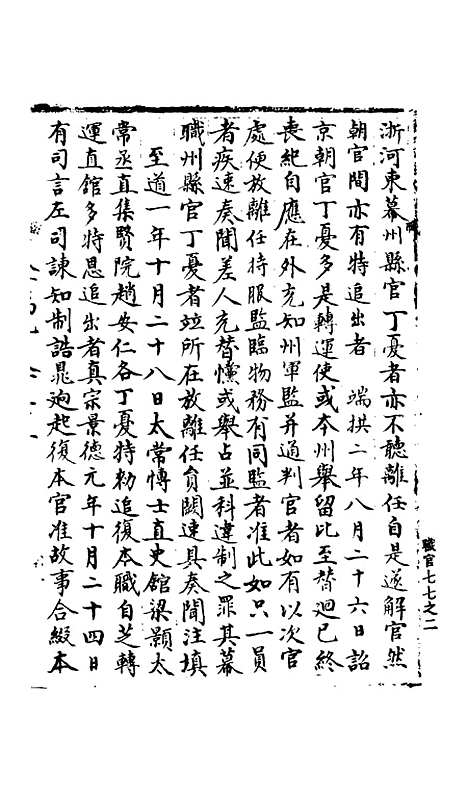 浙河東幕州縣官丁憂者亦不聽離任自是遂解官然
朝官間亦有特追出者　端拱二年八月二十六日詔
京朝官丁憂多是轉運使或本州舉留比至替迴已終
喪紀自應在外充知州軍監并通判官者如有以次官
處便放離任持服監臨物務有同監者准此如只一員
者疾速奏聞差人充替儻或舉占並科違制之罪其幕
職州縣官丁憂者竝所在放離任員闕速具奏聞注填
至道一年十月二十八日太常博士直史館梁顥太
常丞直集賢院趙安仁各丁憂特勑追復本職自芝轉
運直館多特恩追出者真宗景德元年十月二十四日
有司言左司諫知制誥晁逈起復本官准故事合綴本
職官七七之二